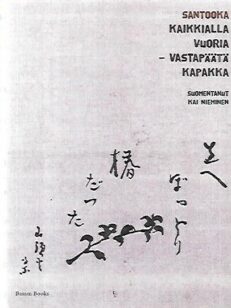 SANTOOKA
KAIKKIALLA
VUORIA
– VASTAPÄÄTÄ
KAPAKKA
SUOMENTANUT
KAI NIEMINEN
ぽつとり
椿
だつた
Basam Books